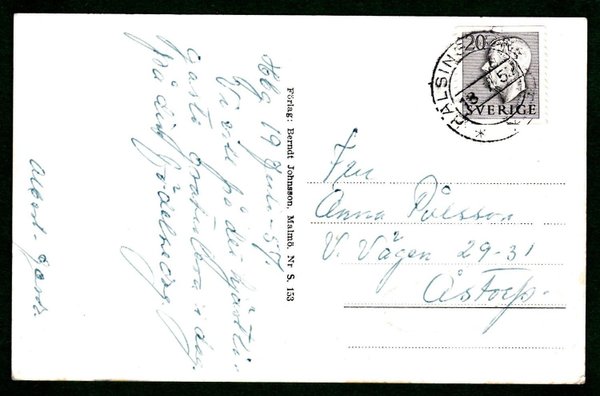 Hbg 19 Juni -57
Vi ber på det hjärtli-
gaste gratulera i dag
på din födelsedag
Albert - Gerda.
Förlag: Berndt Johnsson, Malmö. Nr S. 153
20
SVERIGE
HÄLSING
57
Fru
Anna Pålsson
V. Vägen 29-31
Åstorp.